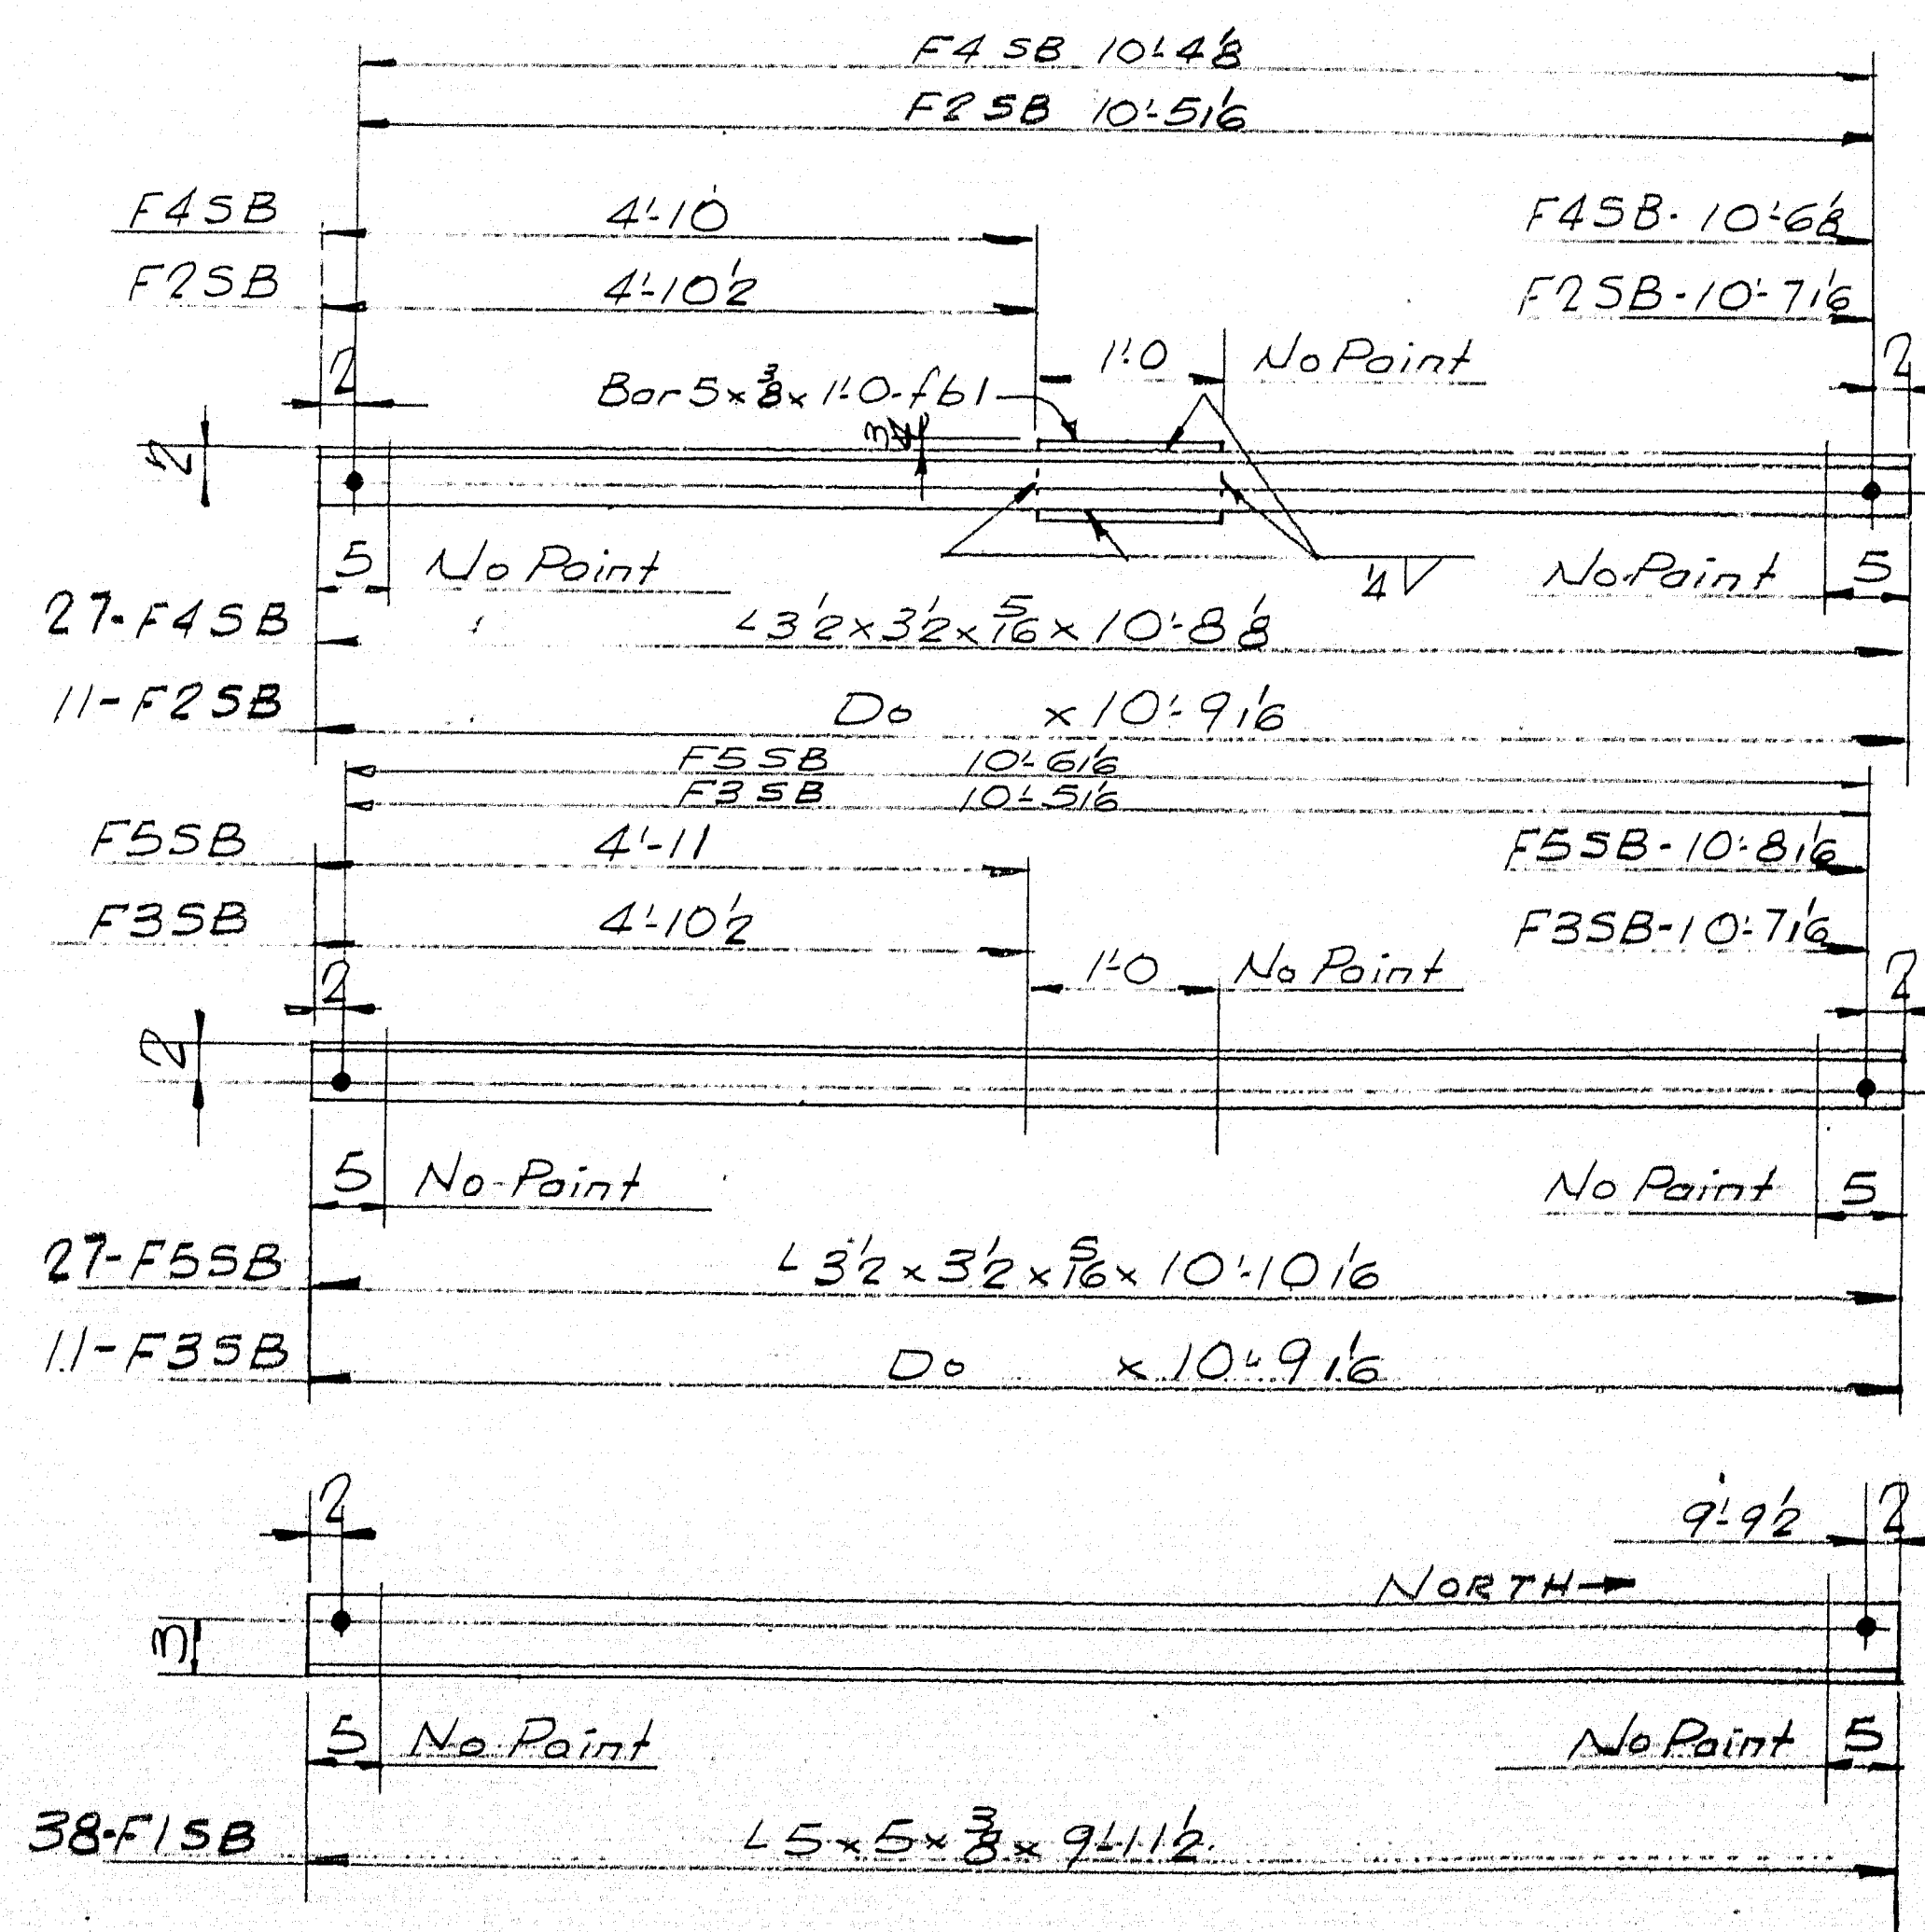 F4SB 10'-4 1/8
F2SB 10'-5 1/16
F4SB 4'-10 F4SB-10'-6 1/8
F2SB 4'-10 1/2 F2SB-10'-7 1/16
2 Bar 5 x 3/8 x 1'-0-fb1 1'-0 No Paint 2
2 3/4
5 No Paint 1/4 No Paint 5
27-F4SB L 3 1/2 x 3 1/2 x 5/16 x 10'-8 1/8
11-F2SB Do x 10'-9 1/16
F5SB 10'-6 1/16
F3SB 10'-5 1/16
F5SB 4'-11 F5SB-10'-8 1/16
F3SB 4'-10 1/2 F3SB-10'-7 1/16
2 1'-0 No Paint 2
2
5 No-Paint No Paint 5
27-F5SB L 3 1/2 x 3 1/2 x 5/16 x 10'-10 1/16
11-F3SB Do x 10'-9 1/16
2 9'-9 1/2 2
NORTH
3
5 No Paint No Paint 5
38-F1SB L 5 x 5 x 3/8 x 9'-11 1/2